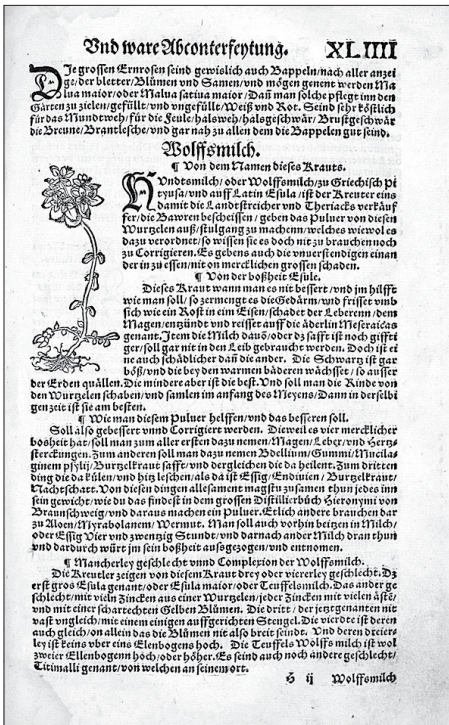 Vnd ware Abconterfeytung. XLIIII
DIe grossen Ernrosen seind gewislich auch Bappeln/nach aller anzei
ge/der bletter/Blůmen vnd Samen/vnd mögen genent werden Ma
lua maior/oder Malua satiua maior/Dañ man solche pflegt inn den
Gärten zu zielen/gefüllt/vnd vngefüllt/Weiß vnd Rot. Seind sehr köstlich
für das Mundtweh/für die feule/halsweh/halsgeschwär/Brustgeschwär
die Breune/Brantlesche/vnd gar nah zu allem dem die Bappelen gut seind.
Wolffsmilch.
¶ Von dem Namen dieses Krauts.
HVndtsmilch/oder Wolffsmilch/zu Griechisch Pi
tyusa/vnd auff Latin Esula/ist der Kreuter eins
damit die Landtstreicher vnd Theriacks verkäuf
fer/die Bawren bescheissen/geben das Puluer von diesen
Wurtzelen auß/stulgang zu machenn/welches wiewol es
dazu verordnet/so wissen sie es doch nit zu brauchen noch
zu Corrigieren. Es gebens auch die vnuerstendigen einan
der in zu essen/nit on mercklichen grossen schaden.
¶ Von der boßheit Esule.
Dieses Kraut wann man es nit bessert/vnd jm hilfft
wie man soll/so zermengt es die Gedärm/vnd frisset vmb
sich wie ein Rost in eim Eisen/schadet der Leberenn/dem
Magen/entzündt vnd reisset auff die äderlin Meseraicas
genant. Item die Milch dauō/oder dz safft ist noch giffti
ger/soll gar nit in den Leib gebraucht werden. Doch ist ei
ne auch schädlicher dañ die ander. Die Schwartz ist gar
böß/vnd die bey den warmen bäderen wächsset/so ausser
der Erden quällen. Die mindere aber ist die best. Vnd soll man die Rinde von
den Wurtzelen schaben/vnd samlen im anfang des Meyens/Dann in derselbi
gen zeit ist sie am besten.
¶ Wie man diesem Puluer helffen/vnd das besseren soll.
Soll also gebessert vnnd Corrigiert werden. Dieweil es vier mercklicher
bosheit hat/soll man zum aller ersten dazu nemen/Magen/Leber/vnd Hertz-
sterckungen. Zum anderen soll man dazu nemen Bdellium/Gummi/Mucila-
ginem psylij/Burtzelkraut safft/vnd dergleichen die da heilent. Zum dritten
ding die da külen/vnd hitz leschen/als da ist Essig/Endiuien/Burtzelkraut/
Nachtschatt. Von diesen dingen allesamen magstu zusamen thun jedes inn
sein gewicht/wie du das findest in dem grossen Distillierbůch Hieronymi von
Braunschweig/vnd daraus machen ein Puluer. Etlich andere brauchen dar
zu Aloen/Myrabolanem/Wermut. Man soll auch vorhin beitzen in Milch/
oder Essig Vier vnd zwentzig Stundt/vnd darnach ander Milch dran thun
vnd dardurch würt jm sein boßheit ausgezogen/vnd entnomen.
¶ Mancherley geschlecht vnnd Complexion der Wolffsmilch.
Die Kreutler zeigen von diesem Kraut drey oder viererley geschlecht. Dz
erst gros Esula genant/oder Esula maior/oder Teuffelsmilch. Das ander ge
schlecht/mit vielen Zincken aus einer Wurtzelen/jeder Zincken mit vielen ästē/
vnd mit einer schartechten Gelben Blümen. Die dritt/der jetztgenanten nit
vast vngleich/mit einem einigen auffgerichten Stengel. Die vierdte ist deren
auch gleich/on allein das die Blümen nit also breit seindt. Vnd deren dreier-
ley ist keins vber eins Elenbogens hoch. Die Teuffels Wolffs milch ist wol
zweier Ellenbogenn hoch/oder höher. Es seind auch noch andere geschlecht/
Titimalli genant/von welchen an seinem ort.
H ij Wolffsmilch